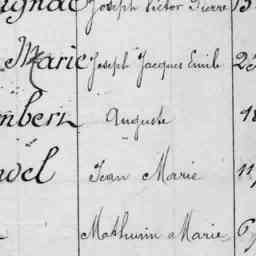 ignac Joseph Victor Pierre
Marie Joseph Jacques Emile
mbert Auguste
Jean Marie
Mathurin Marie